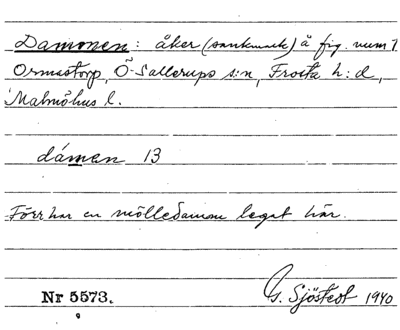 Dammen: åker (sankmark) å fig. num 1
Ormastorp, Ö. Sallerups s:n, Frosta h:d,
Malmöhus l.
dámen 13
Förr har en mölledamm legat här.
Nr 5573. G. Sjöstedt 1940